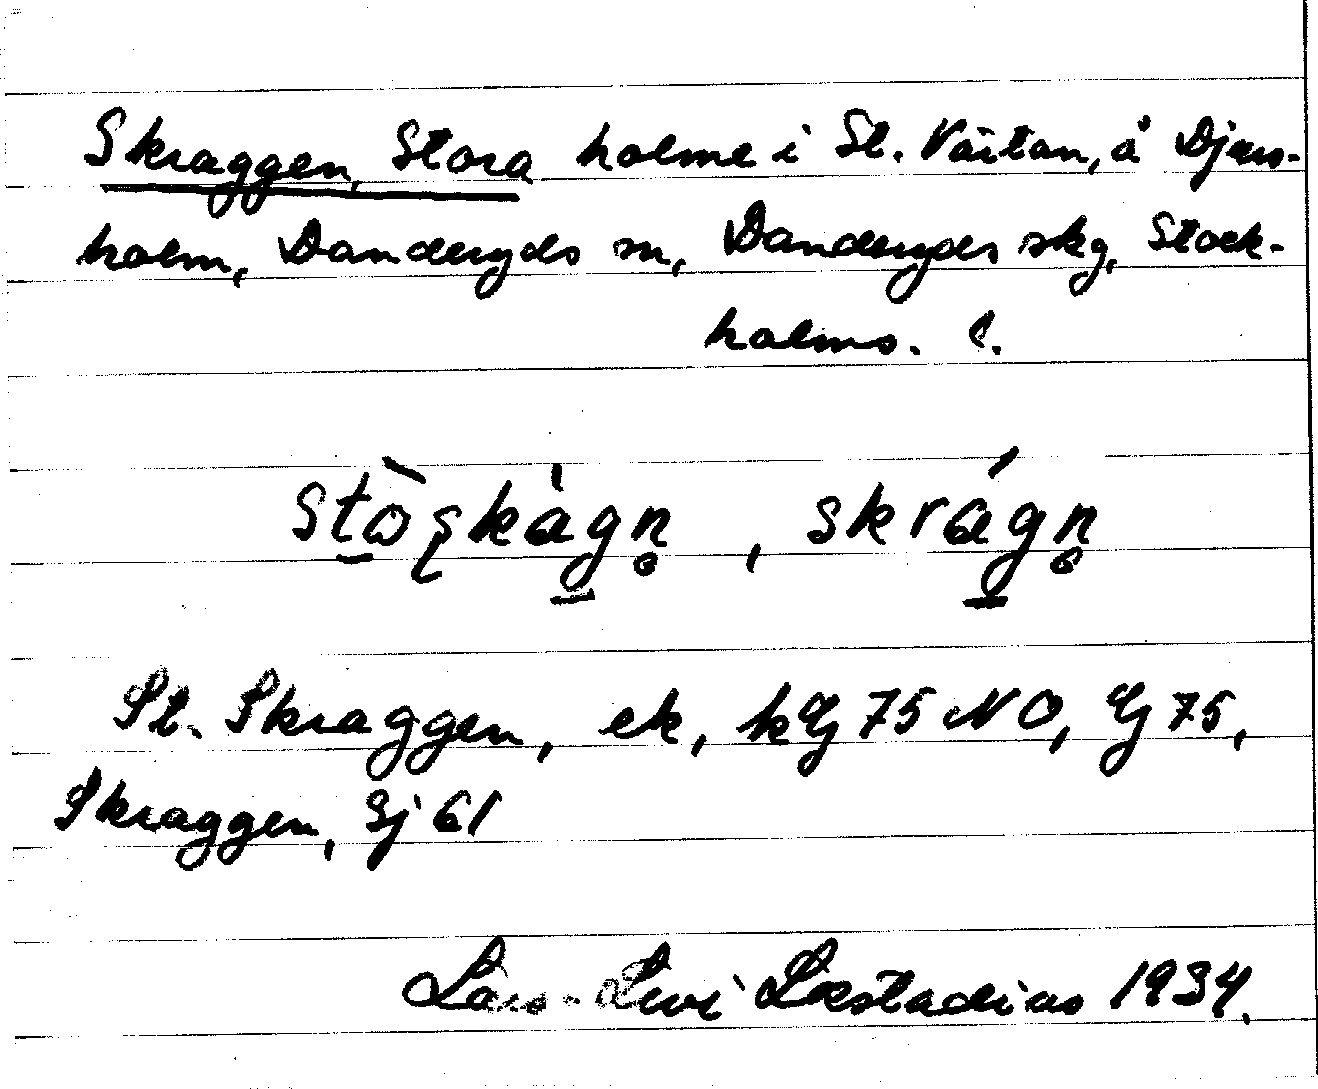 Skraggen, Stora holme i St. Värtan, å Djurs-
holm, Danderyds sn, Danderyds skg, Stock-
holms. l.
stòʂkàgn̥, skrágn̥
St. Skraggen, ek, kGj 75 NO, Gj 75,
Skraggen, Sj 61
Lars-Levi Læstadius 1934.